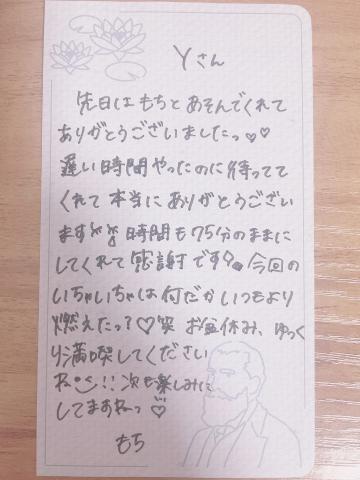 Yさん
先日はもちとあそんでくれて
ありがとうございましたっ♡♡
遅い時間やったのに待ってて
くれて本当にありがとうござい
ます 時間も75分のままに
してくれて感謝です 今回の
いちゃいちゃは何だかいつもより
燃えたっ?♡笑 お盆休み、ゆっく
り満喫してください
ね!! 次も楽しみに
してますねーっ♡
もち